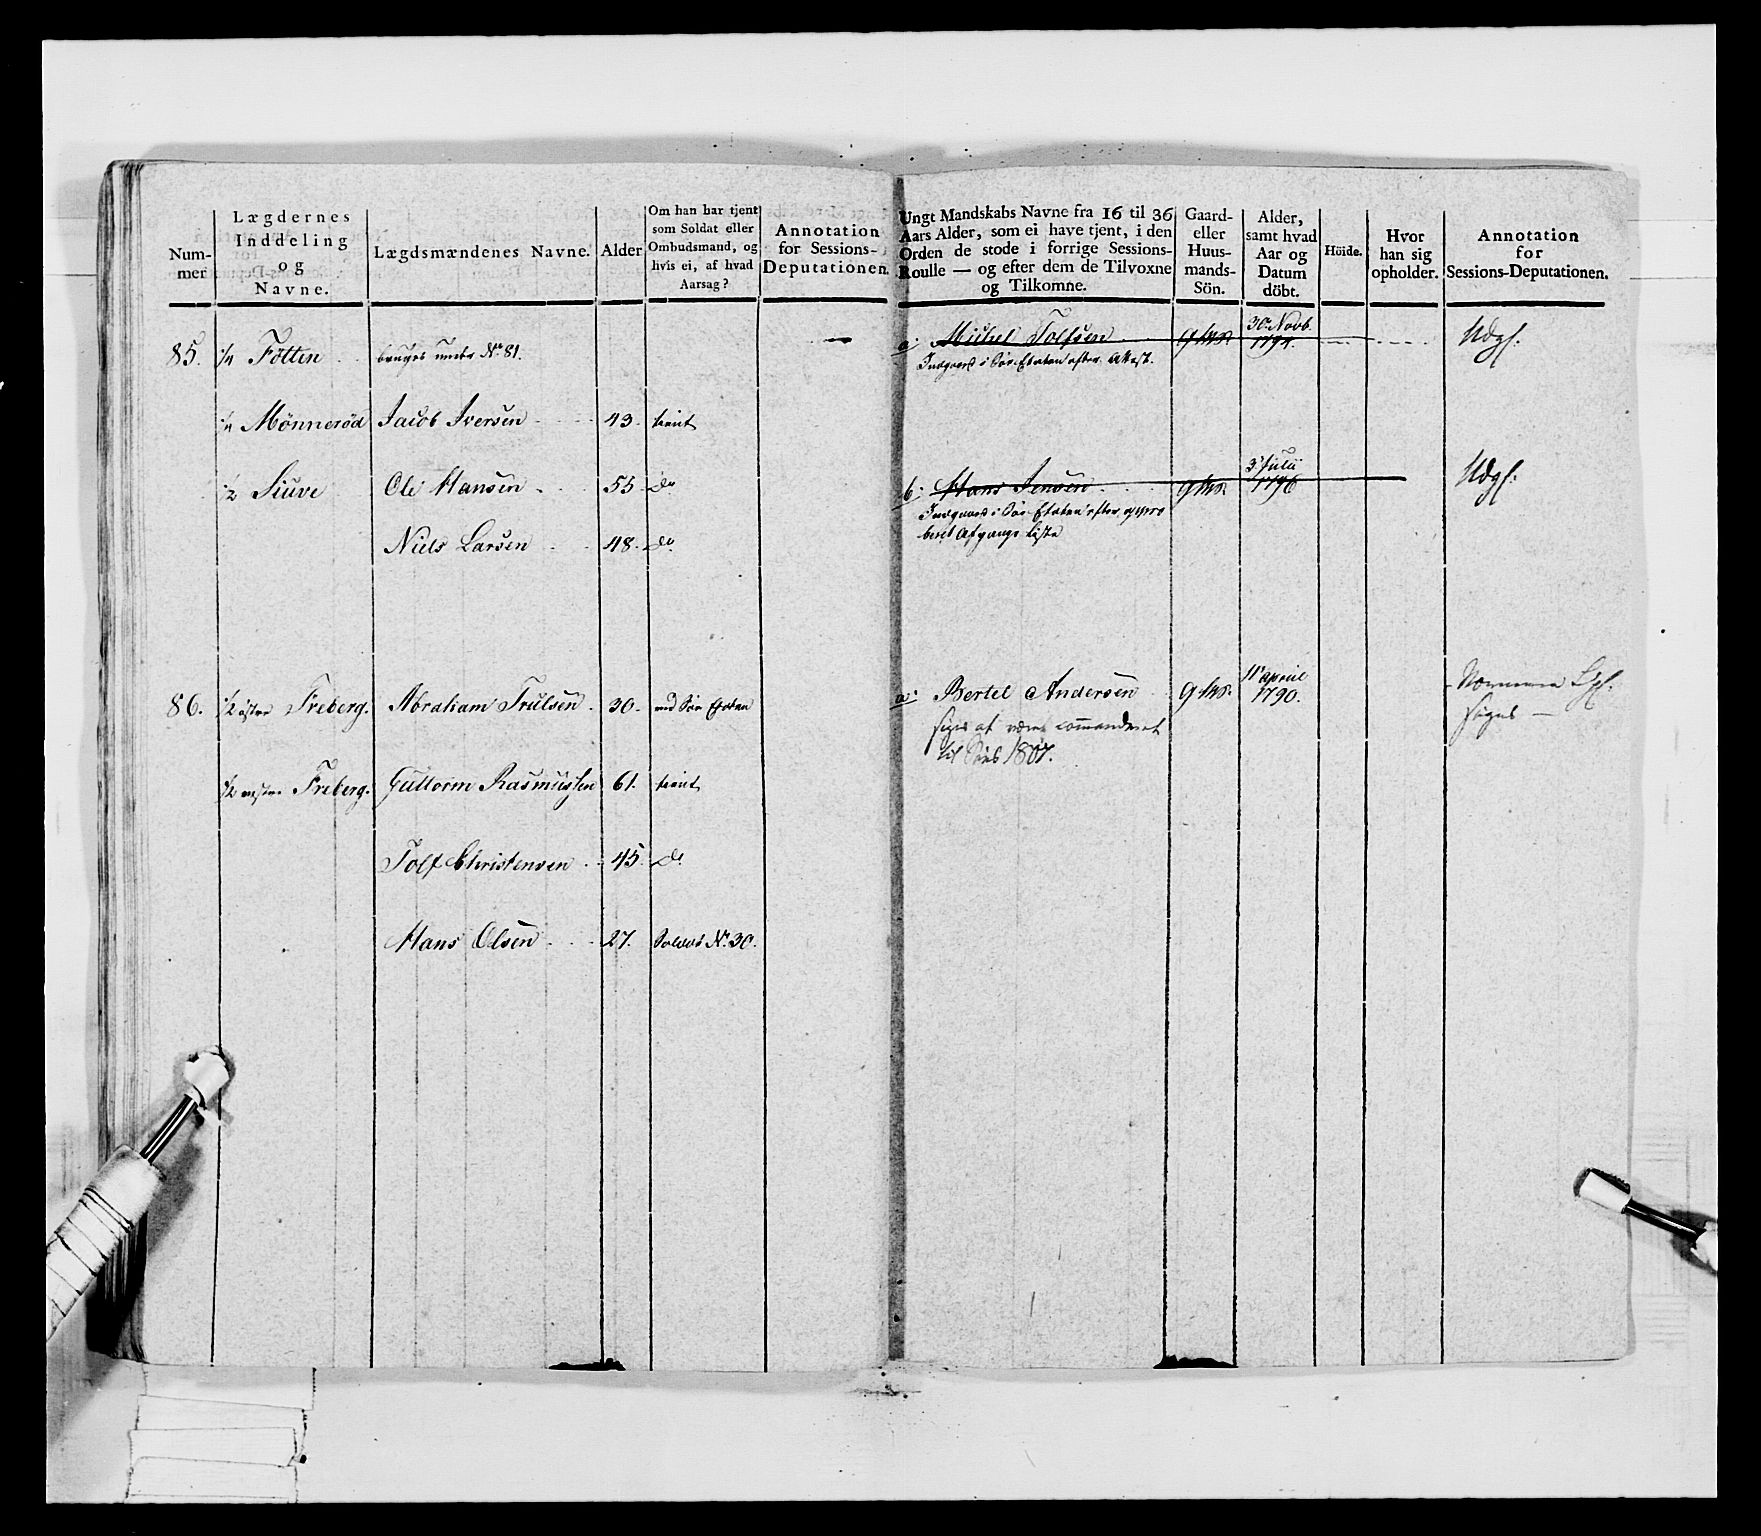 Nummer
Lægdernes Inddeling og Navne.
Lægdsmændenes Navne.
Alder
Om han har tjent som Soldat eller Ombudsmand, og hvis ei, af hvad Aarsag?
Annotation for Sessions-Deputationen.
Ungt Mandskabs Navne fra 16 til 36 Aars Alder, som ei have tjent, i den Orden de stode i forrige Sessions-Roulle — og efter dem de Tilvoxne og Tilkomne.
Gaard- eller Huusmands-Sön.
Alder, samt hvad Aar og Datum döbt.
Höide.
Hvor han sig opholder.
Annotation for Sessions-Deputationen.
85. 1/4 Fötten bruges under No 81. —
a. Michel Tolfsen g 30. Novb. 1794. Udgl.
Indgaaet i Söe-Etaten efter Attest.
1/4 Mönneröd Jacob Iversen 43. tient
1/2 Siuve Ole Hansen 55. Do
b. Hans Jensen 3. Julii 1796 Udgl.
Indgaaet i Söe-Etaten efter appro
beret Afgangs Liste
Niels Larsen 48. Do
86. 1/2 östre Freberg. Abraham Trulsen 30. ved Söe Etaten
a. Bertel Andersen 11 April 1790.
siges at være commanderet
til Söes 1807.
1/2 vestre Freberg. Guttorm Rasmussen 61. tient
Tolf Christensen 45. Do
Hans Olsen 27. Soldat No. 30.